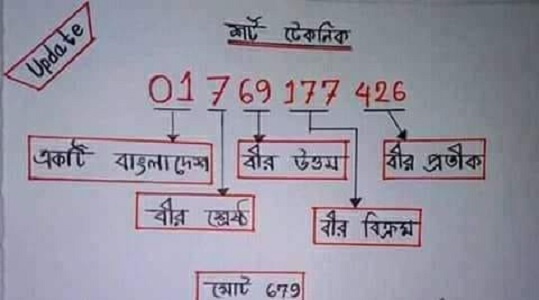 Update
শর্ট টেকনিক
01 7 69 177 426
একটি বাংলাদেশ
বীর উত্তম
বীর প্রতীক
বীর শ্রেষ্ঠ
বীর বিক্রম
মোট 679